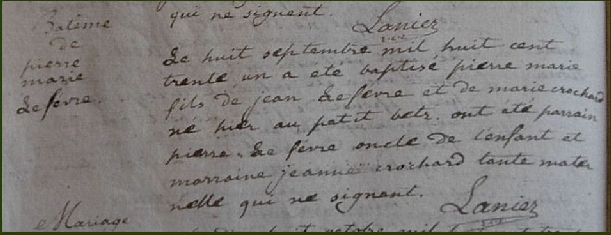 qui ne signent.
Laniez
Batême
de
pierre
marie
Lefevre.
Le huit septembre mil huit cent
trente un a été baptisé pierre marie
fils de jean Lefevre et de marie crochard
né hier au patit betz. ont été parrain
pierre Le fevre oncle de l'enfant et
marraine jeanne crochard tante mater
nelle qui ne signent.
Laniez
Mariage
octobre mil